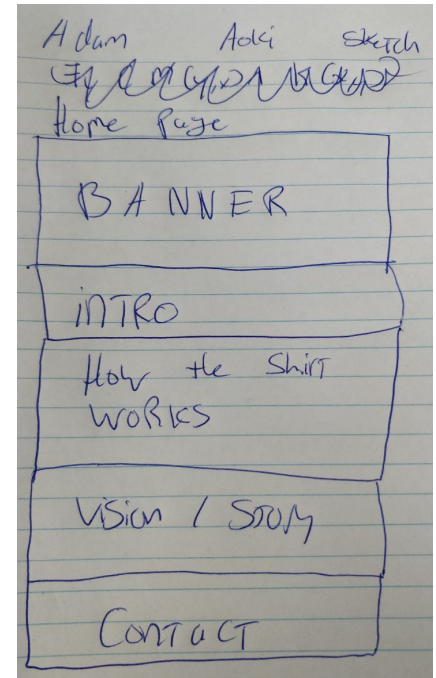 Adam Aoki Sketch
Home Page
BANNER
iNTRO
How the Shirt
WORKS
Vision / Story
Contact